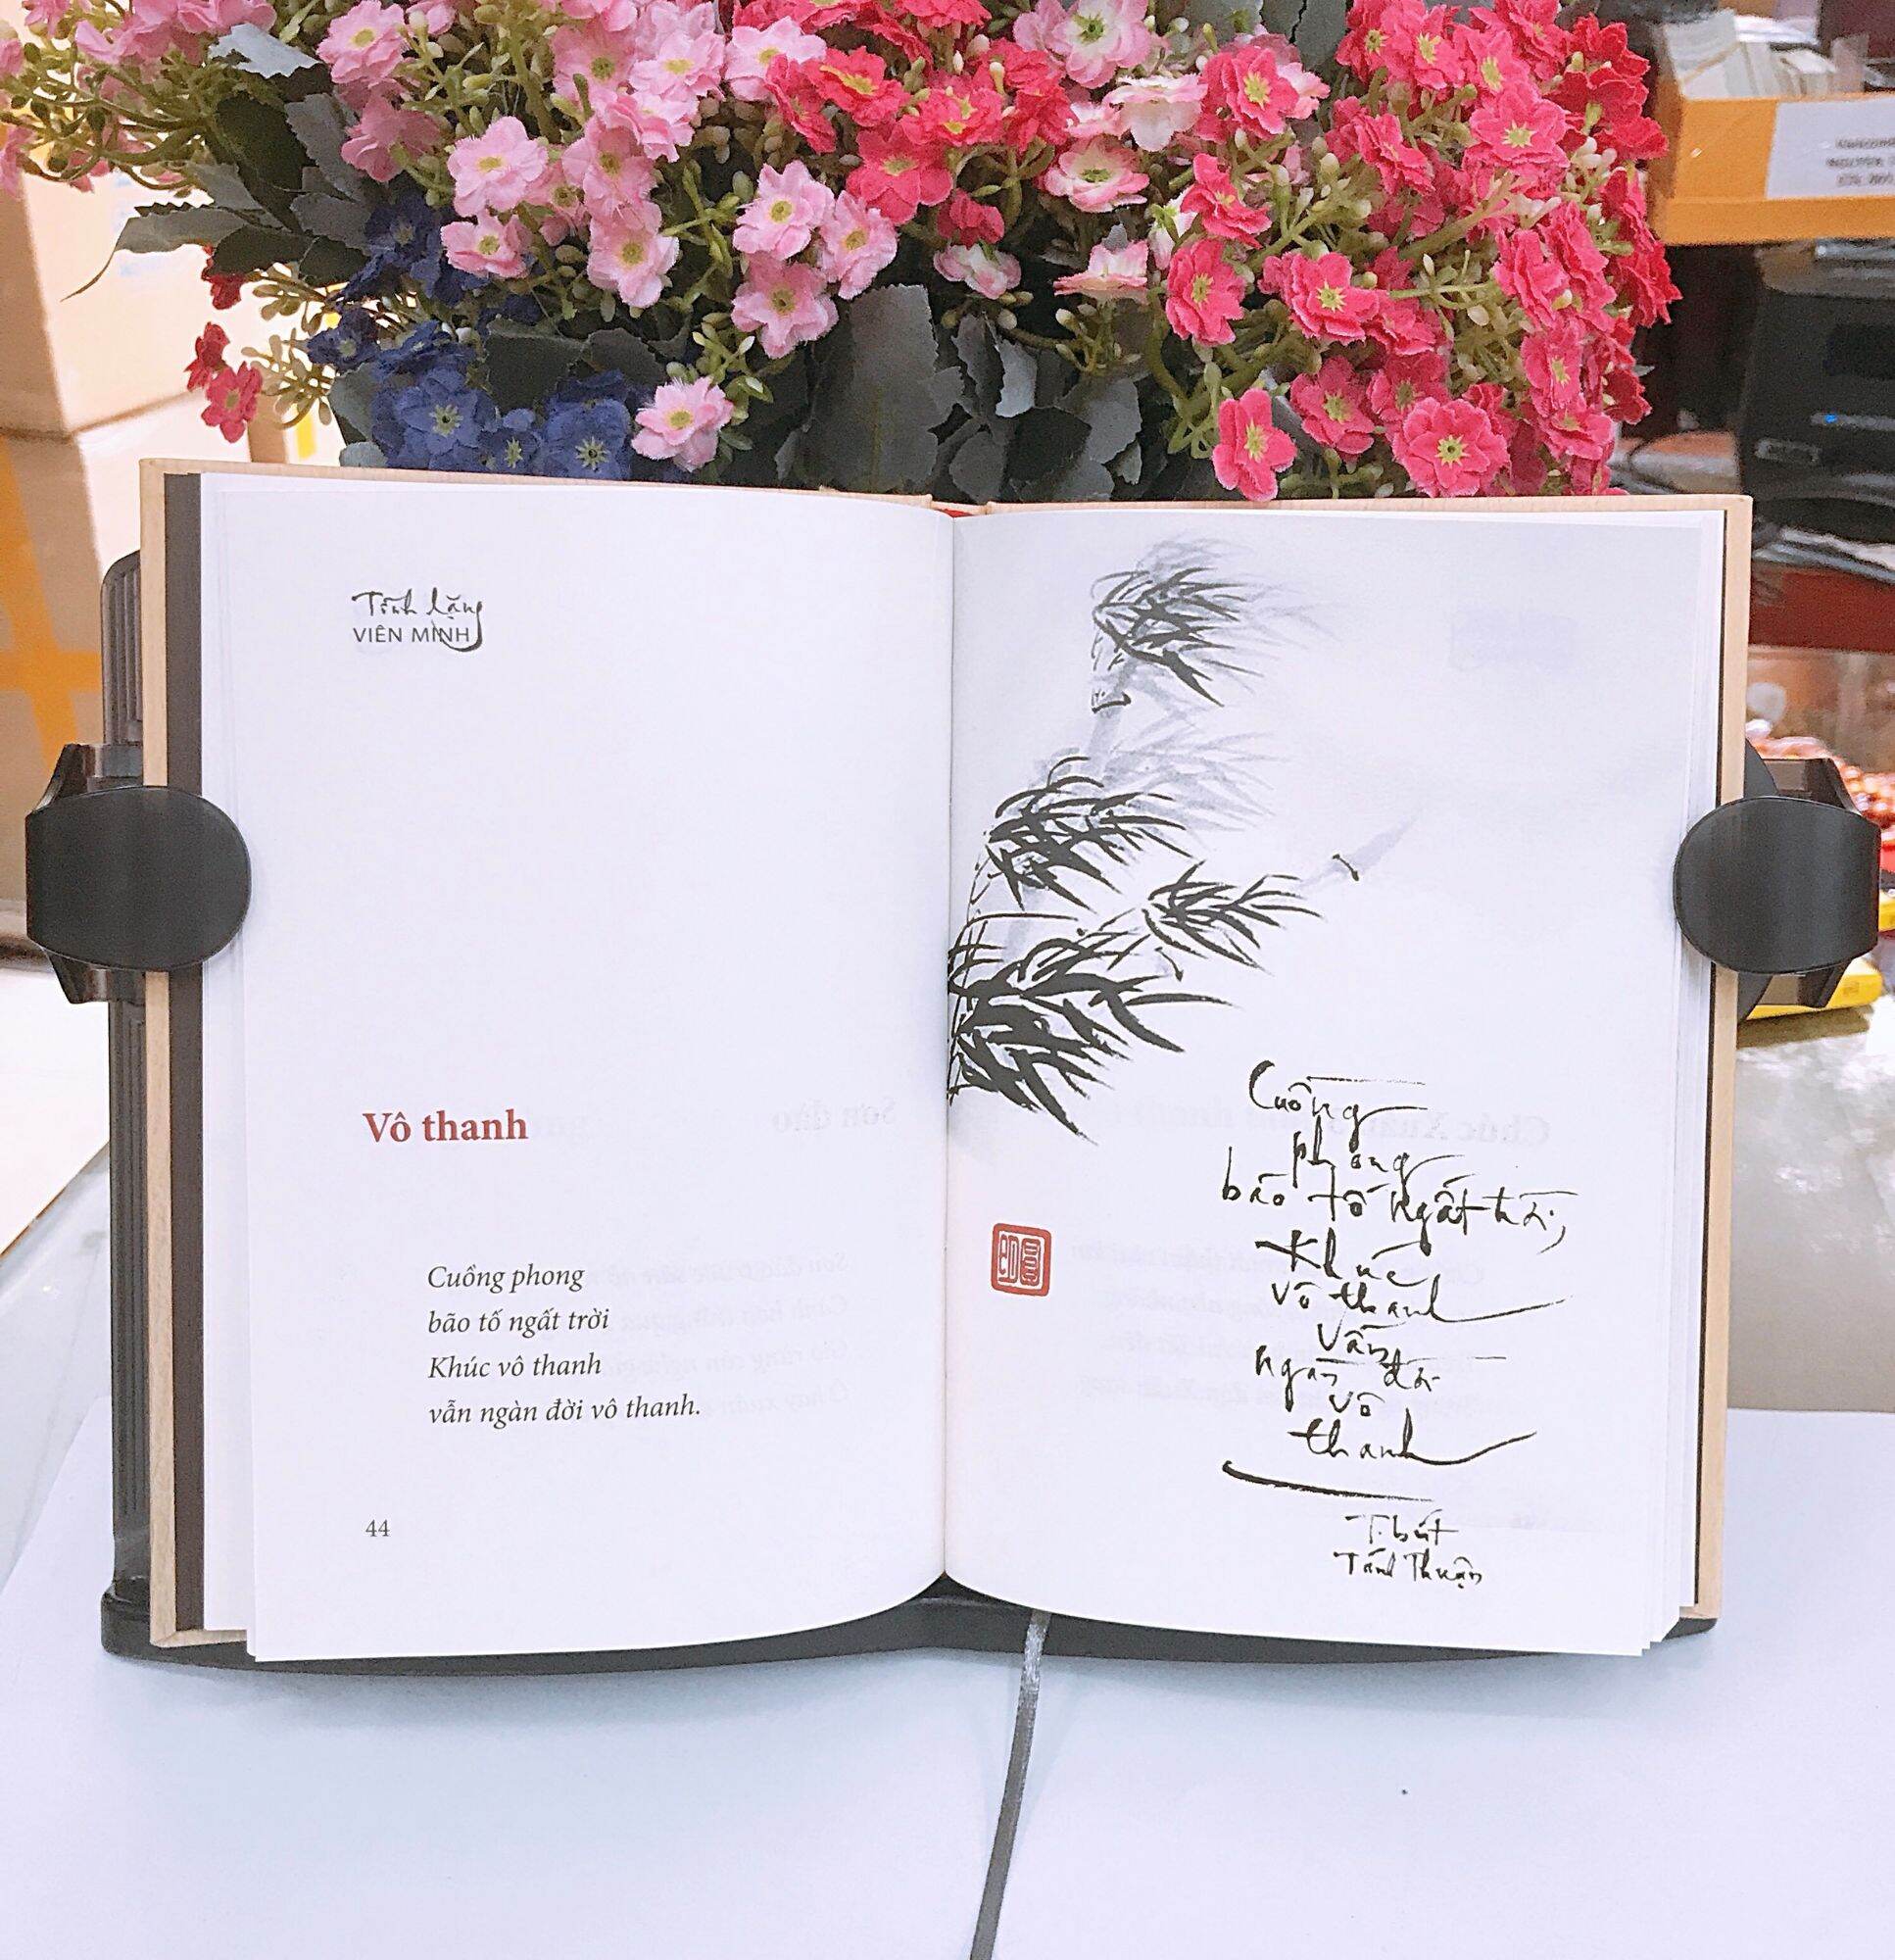 Tĩnh lặng
VIÊN MINH
Vô thanh
Cuồng phong
bão tố ngất trời
Khúc vô thanh
vẫn ngàn đời vô thanh.
44
Cuồng
phong
bão tố ngất trời,
Khúc
vô thanh
Vẫn
ngàn đời
Vô
thanh
T.bút
Tánh Thuận